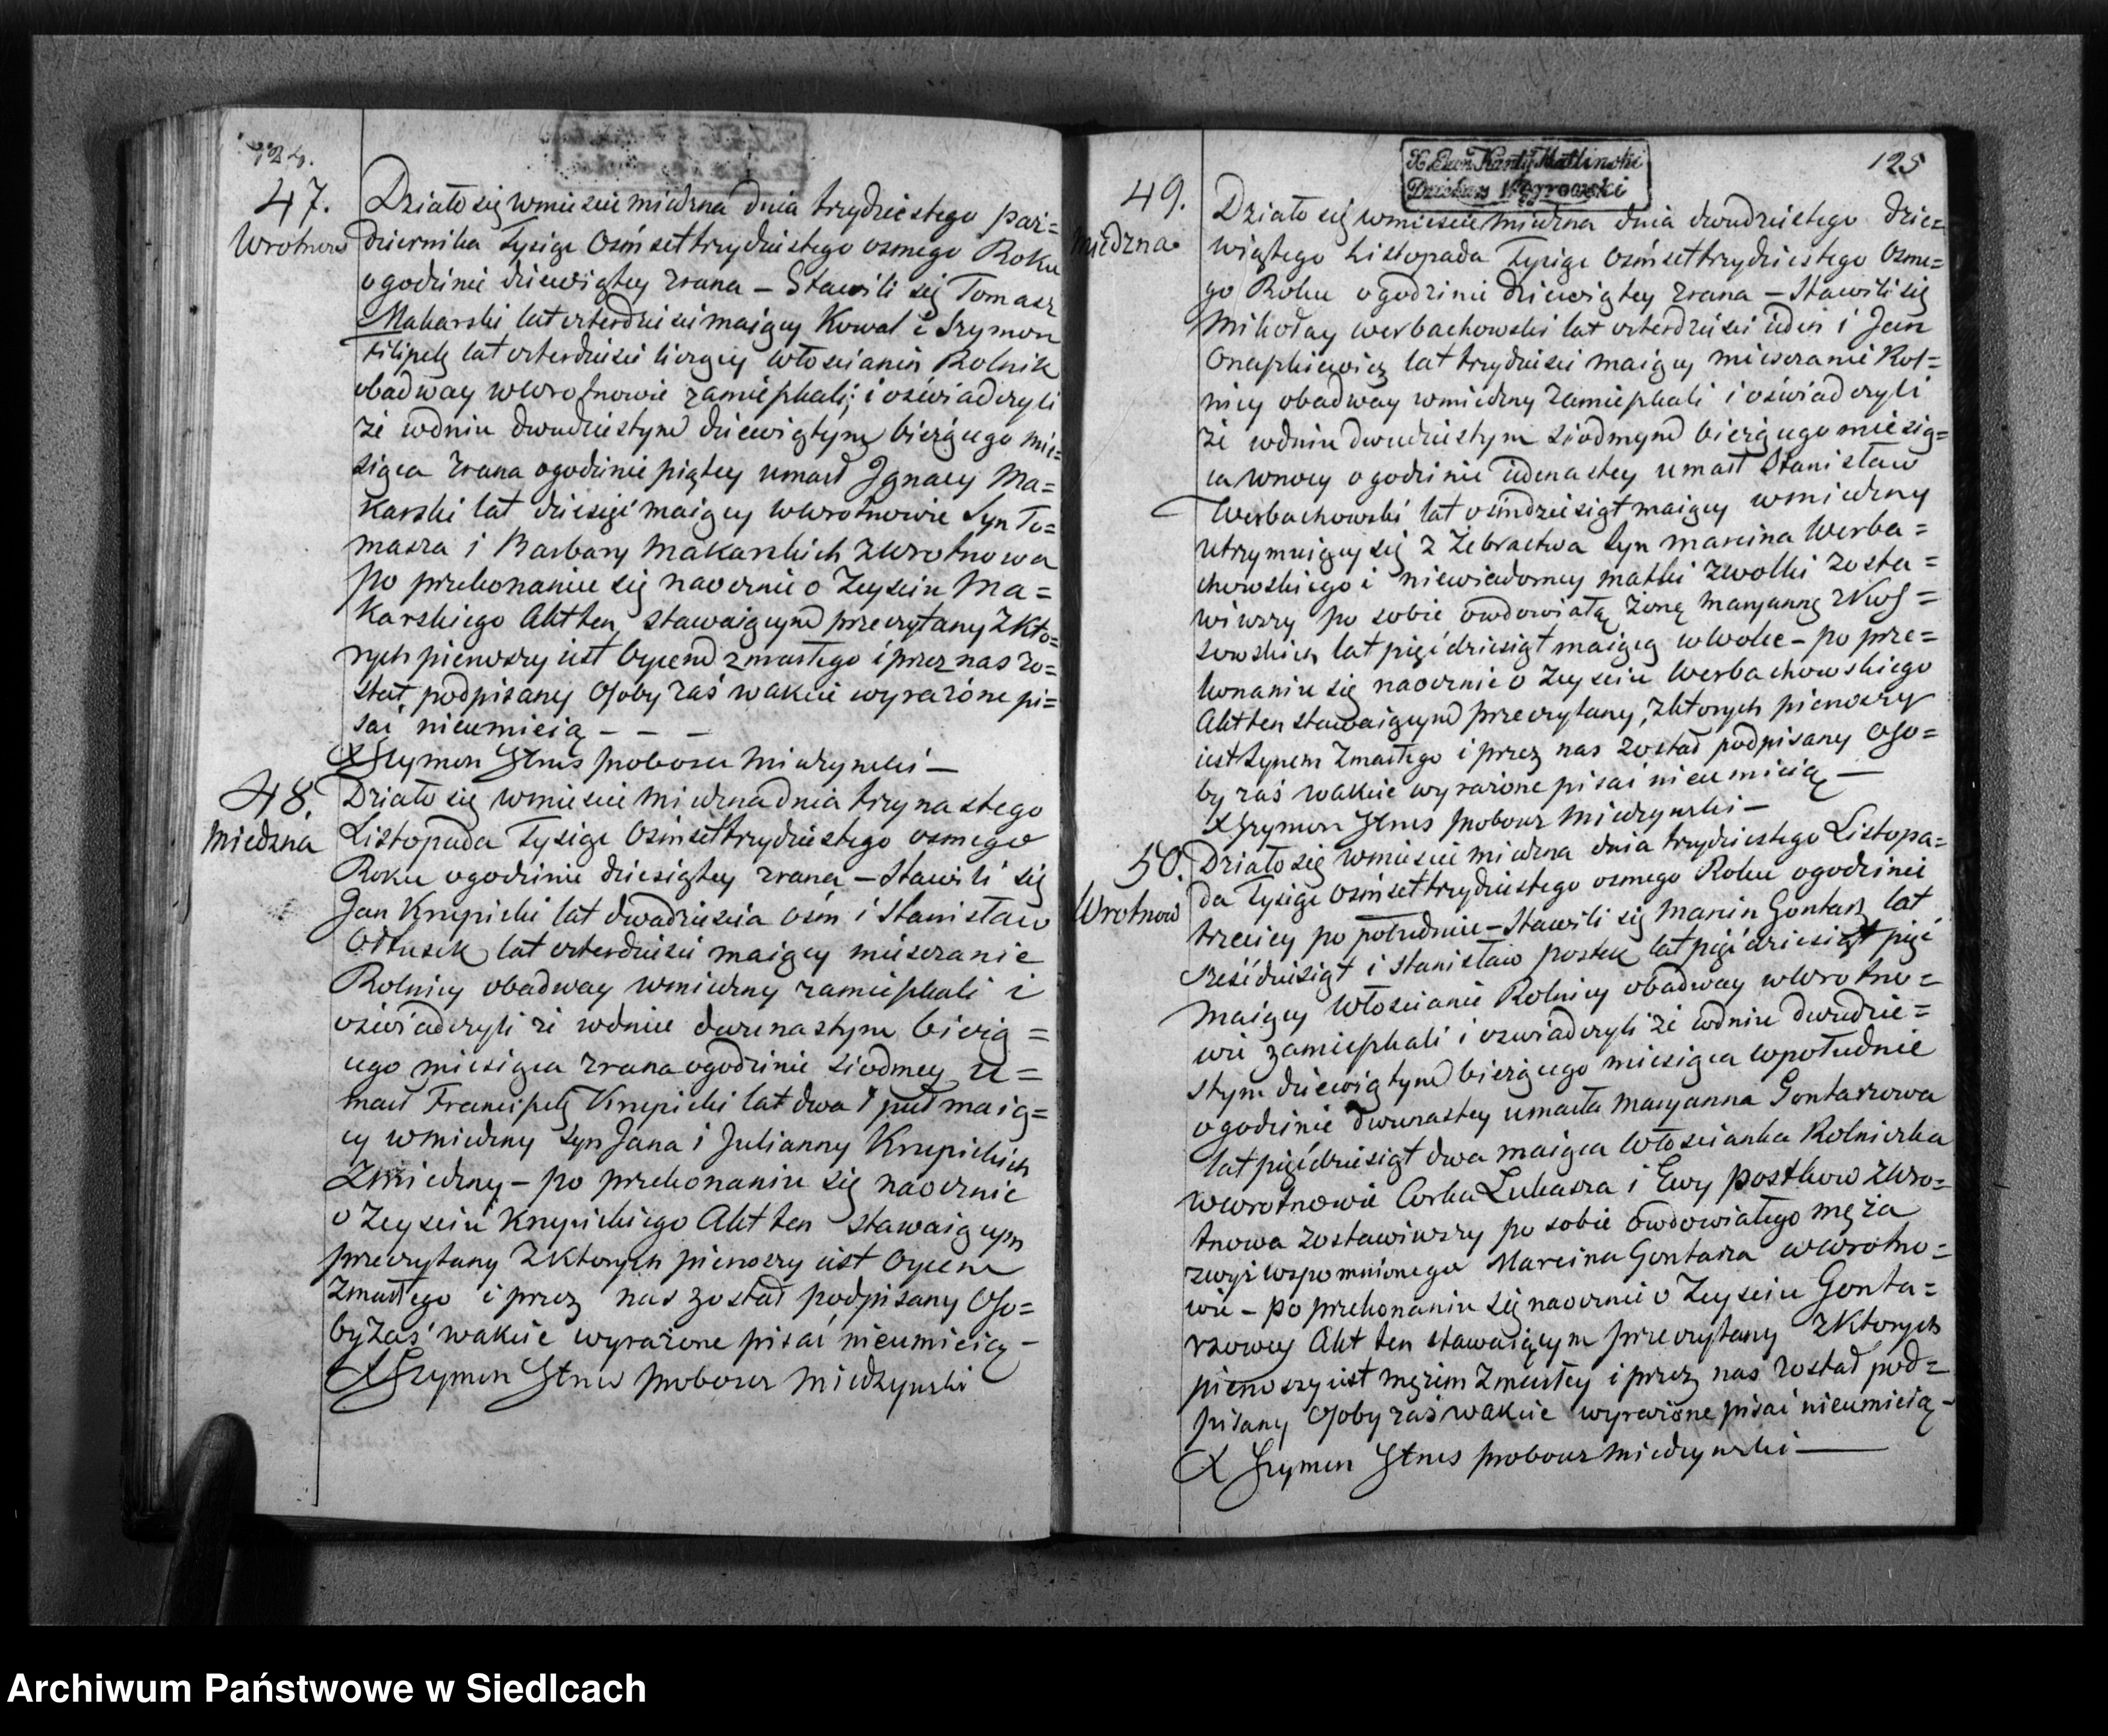 124.
47.
Wrotnow
Działo się wmiescie miedzna dnia trzydziestego paź=
dziernika Tysiąc Ośmset trzydziestego osmego Roku
o godzinie dziewiątey zrana – Stawili się Tomasz
Makarski lat czterdziesci maiący Kowal i Szymon
Filipek lat czterdziesci liczący Włoscianin Rolnik
obadway wWrotnowie zamieszkali; i oświadczyli
że wdniu dwudziestym dziewiątym bieżącego mie=
siąca zrana ogodzinie piątey umarł Jgnacy Ma=
karski lat dziesięć maiący wWrotnowie Syn To=
masza i Barbary Makarskich zWrotnowa
po przekonaniu się naocznie o Zeysciu Ma=
karskiego Akt ten stawaiącym przeczytany z kto=
rych pierwszy iest Oycem zmarłego i przez nas zo=
stał podpisany Osoby zaś wakcie wyrażone pi=
sać nieumieią – – –
X Szymon Stnis proboszcz Miedzynski –
48.
Miedzna
Działo się wmiescie Miedzna dnia trzynastego
Listopada Tysiąc Ośmset trzydziestego osmego
Roku ogodzinie dziesiątey zrana – Stawili się
Jan Krupicki lat dwadziescia ośm i Stanisław
Ołtusek lat czterdziesci maiący miesczanie
Rolnicy obadway wmiedzny zamieszkali i
oświadczyli że wdniu dwunastym bieżą=
cego miesiąca zrana ogodzinie siodmey u=
marł Franciszek Krupicki lat dwa i puł maią=
cy wmiedzny syn Jana i Julianny Krupickich
Zmiedzny – po przekonaniu się naocznie
o Zeysciu Krupickiego Akt ten stawaiącym
przeczytany z ktorych pierwszy iest Oycem
zmarłego i przez nas został podpisany Oso=
by zaś wakcie wyrażone pisać nieumieią –
X Szymon Stnis proboszcz Miedzynski
X. Exon Kanty Matlinski
Dziekan Węgrowski
125
49.
Miedzna
Działo się wmiescie Miedzna dnia dwudziestego dzie=
wiątego Listopada Tysiąc Ośmset trzydziestego Osme=
go Roku ogodzinie dziewiątey zrana – Stawili się
Mikołay Werbachowski lat czterdziesci ieden i Jan
Onaphiewicz lat trzydziesci maiący miesczanie Rol=
nicy obadway wmiedzny zamieszkali i oświadczyli
że wdniu dwudziestym siodmym bieżącego miesią=
ca wnocy ogodzinie iedenastey umarł Stanisław
Werbachowski lat ośmdziesiąt maiący wmiedzny
utrzymuiący się z Zebractwa Syn Marcina Werba=
chowskiego i niewiadomey matki zwolki zosta=
wiwszy po sobie owdowiałą żonę Maryannę
lat pięćdziesiąt maiącą wWolce – po prze=
konaniu się naocznie o Zeysciu Werbachowskiego
Akt ten stawaiącym przeczytany, z ktorych pierwszy
iest Synem Zmarłego i przez nas został podpisany Oso=
by zaś wakcie wyrażone pisać nieumieią –
X Szymon Stnis proboszcz Miedzynski –
50.
Wrotnow
Działo się wmiescie miedzna dnia trzydziestego Listopa=
da Tysiąc Ośmset trzydziestego osmego Roku ogodzinie
trzeciey po południu – Stawili się Marcin Gontarz lat
sześćdziesiąt i Stanisław postek lat pięćdziesiąt pięć
maiący Włoscianie Rolnicy obadway wWrotno=
wie zamieszkali i oswiadczyli że wdniu dwudzie=
stym dziewiątym bieżącego miesiąca wpołudnie
ogodzinie dwunastey umarła Maryanna Gontarzowa
lat pięćdziesiąt dwa maiąca Włoscianka Rolniczka
wWrotnowie Corka Łukasza i Ewy postkow zWro=
tnowa zostawiwszy po sobie owdowiałego męża
zwyż wspomnionego Marcina Gontarza wWrotno=
wie – po przekonaniu się naocznie o Zeysciu Gonta=
rzowey Akt ten stawaiącym przeczytany z Ktorych
pierwszy iest mężem Zmarłey i przez nas został pod=
pisany Osoby zaś wakcie wyrażone pisać nieumieią –
X Szymon Stnis proboszcz Miedzynski –
Archiwum Państwowe w Siedlcach